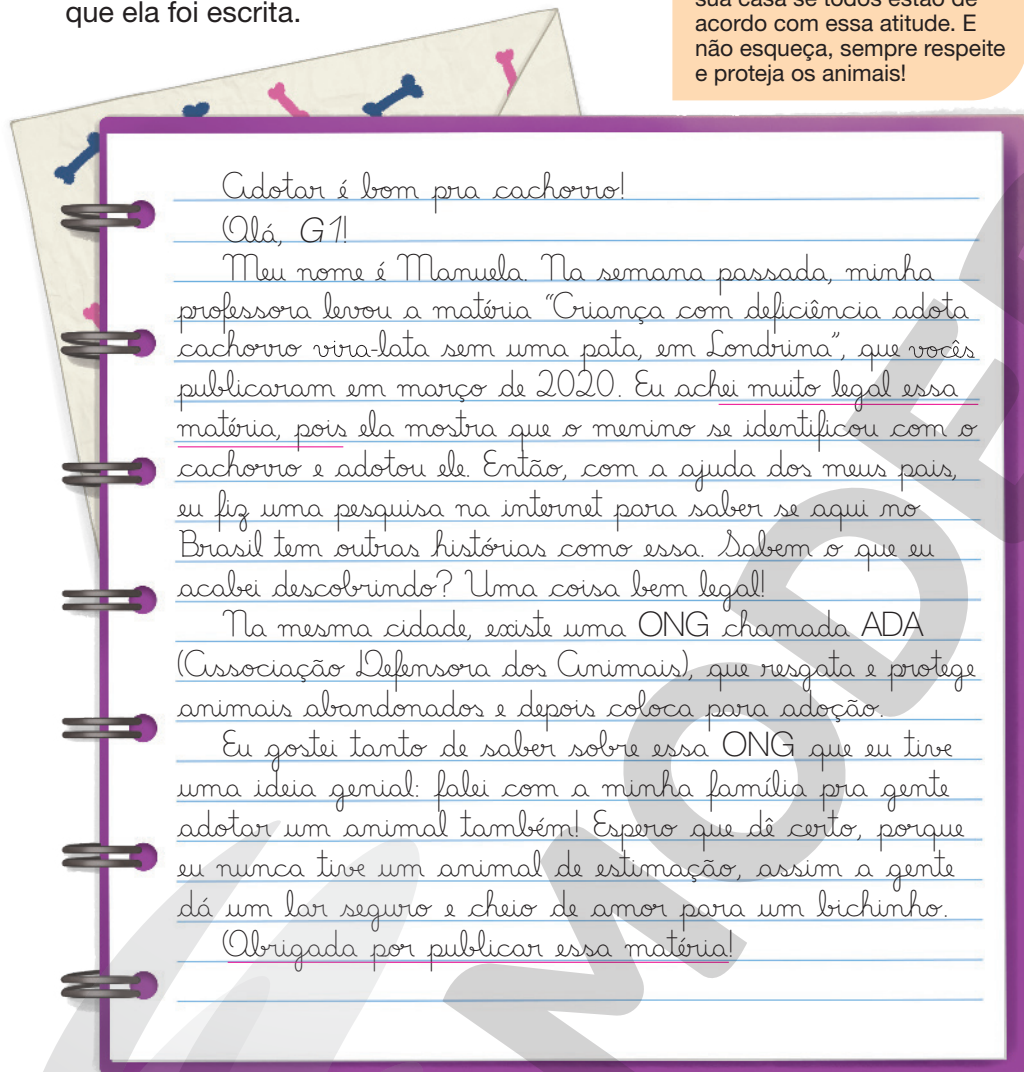 que ela foi escrita.
sua casa se todos estão de
acordo com essa atitude. E
não esqueça, sempre respeite
e proteja os animais!
Adotar é bom pra cachorro!
Olá, G1!
Meu nome é Manuela. Na semana passada, minha
professora levou a matéria “Criança com deficiência adota
cachorro vira-lata sem uma pata, em Londrina”, que vocês
publicaram em março de 2020. Eu achei muito legal essa
matéria, pois ela mostra que o menino se identificou com o
cachorro e adotou ele. Então, com a ajuda dos meus pais,
eu fiz uma pesquisa na internet para saber se aqui no
Brasil tem outras histórias como essa. Sabem o que eu
acabei descobrindo? Uma coisa bem legal!
Na mesma cidade, existe uma ONG chamada ADA
(Associação Defensora dos Animais), que resgata e protege
animais abandonados e depois coloca para adoção.
Eu gostei tanto de saber sobre essa ONG que eu tive
uma ideia genial: falei com a minha família pra gente
adotar um animal também! Espero que dê certo, porque
eu nunca tive um animal de estimação, assim a gente
dá um lar seguro e cheio de amor para um bichinho.
Obrigada por publicar essa matéria!